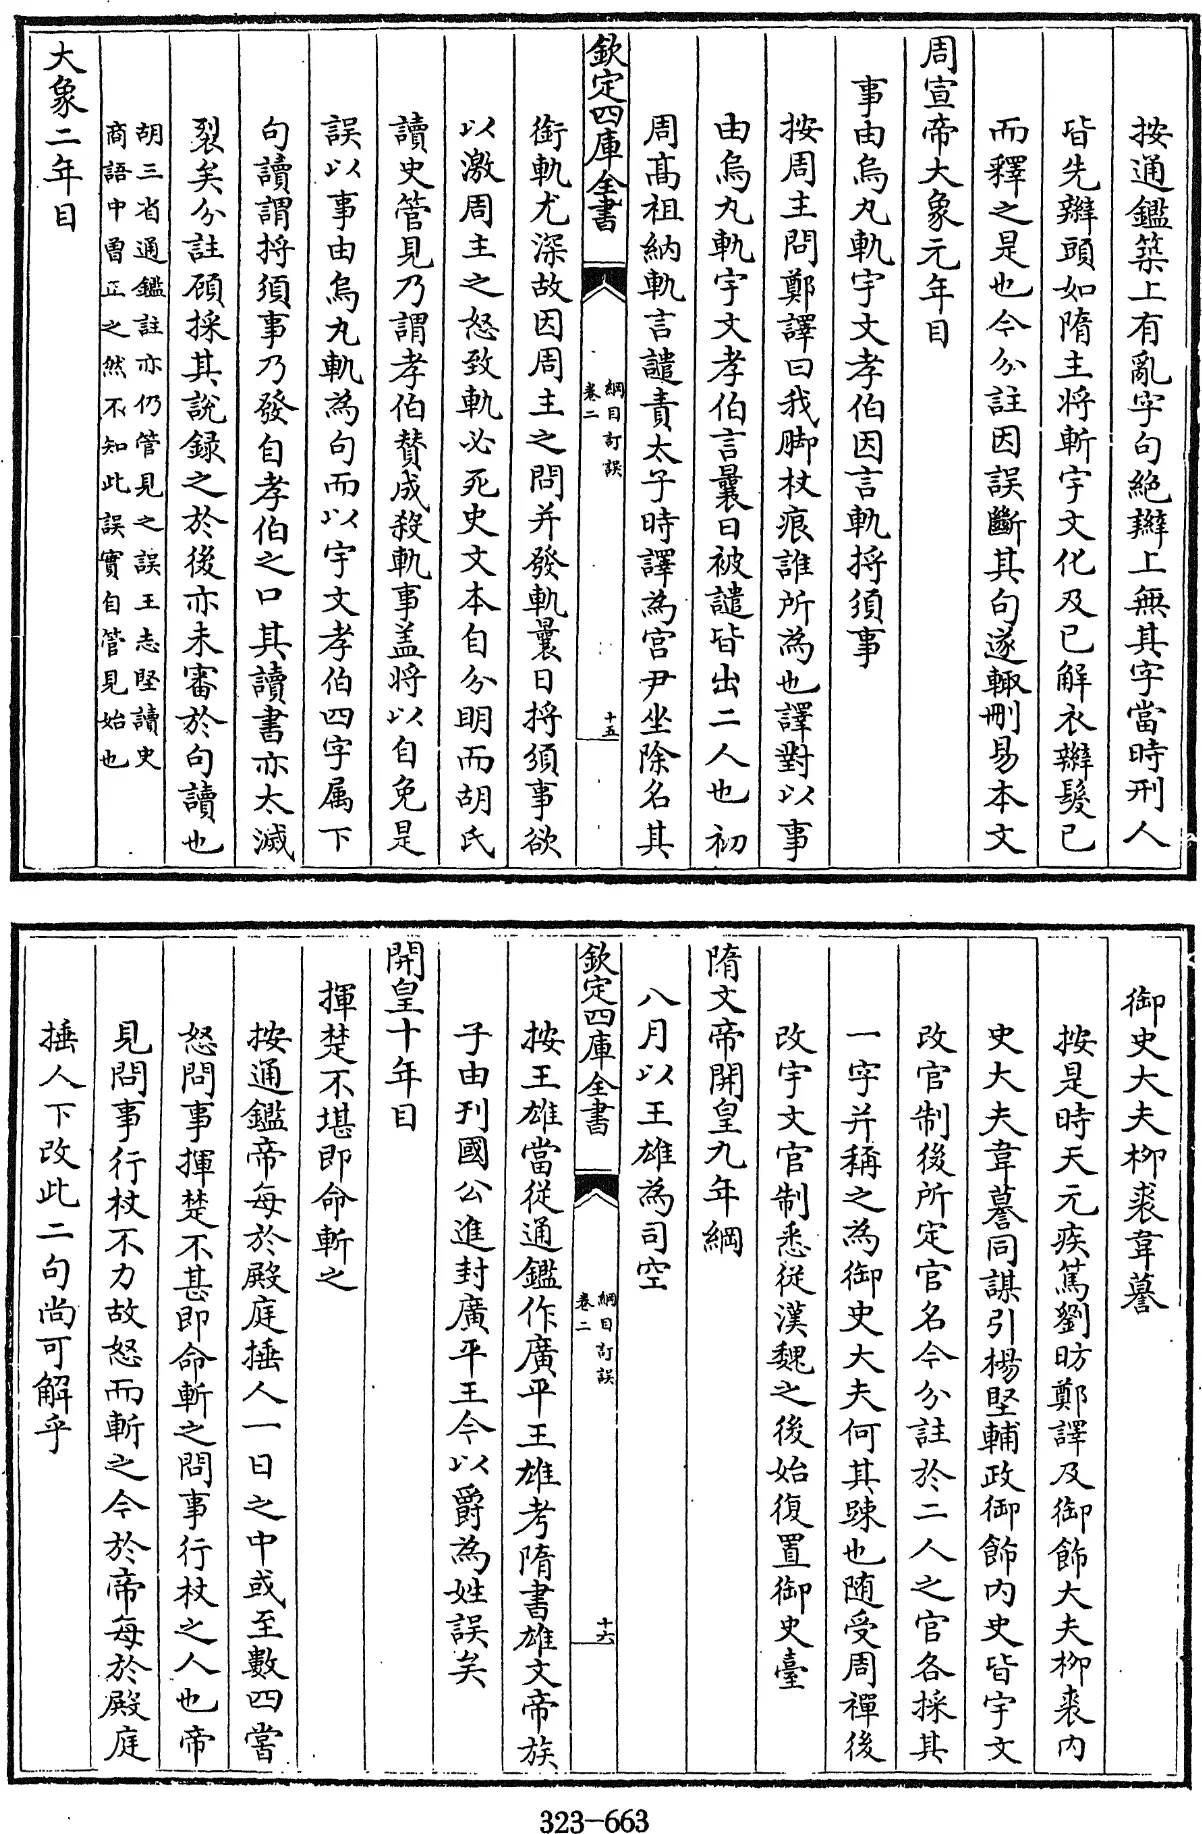 按通鑑築上有亂字句絶辮上無其字當時刑人
皆先辮頭如隋主將斬宇文化及已解衣辮髮已
而釋之是也今分註因誤斷其句遂輙刪易本文
周宣帝大象元年目
事由烏丸軌宇文孝伯因言軌捋須事
按周主問鄭譯曰我脚杖痕誰所為也譯對以事
由烏丸軌宇文孝伯言曩日被譴皆出二人也初
周髙祖納軌言譴責太子時譯為宫尹坐除名其
欽定四庫全書
綱目訂誤
卷二
十五
銜軌尤深故因周主之問并發軌曩日捋須事欲
以激周主之怒致軌必死史文本自分明而胡氏
讀史管見乃謂孝伯賛成殺軌事盖將以自免是
誤以事由烏丸軌為句而以宇文孝伯四字属下
句讀謂捋須事乃發自孝伯之口其讀書亦太滅
裂矣分註顧採其說録之於後亦未審於句讀也
胡三省通鑑註亦仍管見之誤王志堅讀史
商語中曽正之然不知此誤實自管見始也
大象二年目
御史大夫柳裘韋謩
按是時天元疾篤劉昉鄭譯及御飾大夫柳裘内
史大夫韋謩同謀引楊堅輔政御飾内史皆宇文
改官制後所定官名今分註於二人之官各採其
一字并稱之為御史大夫何其踈也随受周禪後
改宇文官制悉從漢魏之後始復置御史臺
隋文帝開皇九年綱
八月以王雄為司空
欽定四庫全書
綱目訂誤
卷二
十六
按王雄當從通鑑作廣平王雄考隋書雄文帝族
子由刋國公進封廣平王今以爵為姓誤矣
開皇十年目
揮楚不堪即命斬之
按通鑑帝每於殿庭捶人一日之中或至數四嘗
怒問事揮楚不甚即命斬之問事行杖之人也帝
見問事行杖不力故怒而斬之今於帝每於殿庭
捶人下改此二句尚可解乎
323-663